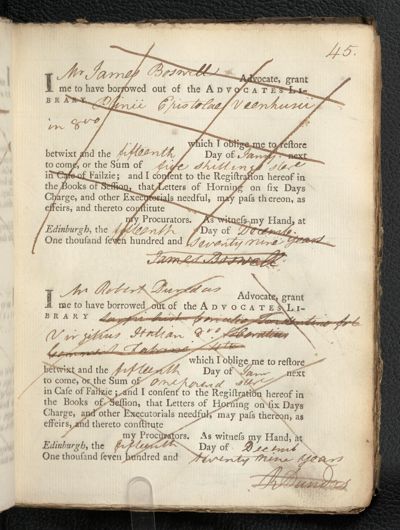 45.
I Mr James Boswell Advocate, grant
me to have borrowed out of the ADVOCATES LI-
BRARY Plinii Epistolae Veenhusii
in 8vo
which I oblige me to restore
betwixt and the fifteenth Day of Janry next
to come, or the Sum of five shillings ster
in Case of Failzie; and I consent to the Registration hereof in
the Books of Session, that Letters of Horning on six Days
Charge, and other Executorials needful, may pass thereon, as
effeirs, and thereto constitute
my Procurators. As witness my Hand, at
Edinburgh, the fifteenth Day of Decembr
One thousand seven hundred and seventy nine years
James Boswell.
I Mr Robert Dundas Advocate, grant
me to have borrowed out of the ADVOCATES LI-
BRARY
Virgilius Italian 8vo
which I oblige me to restore
betwixt and the fifteenth Day of Janr next
to come, or the Sum of one pound ster
in Case of Failzie; and I consent to the Registration hereof in
the Books of Session, that Letters of Horning on six Days
Charge, and other Executorials needful, may pass thereon, as
effeirs, and thereto constitute
my Procurators. As witness my Hand, at
Edinburgh, the fifteenth Day of Decemr
One thousand seven hundred and seventy nine years
R Dundas